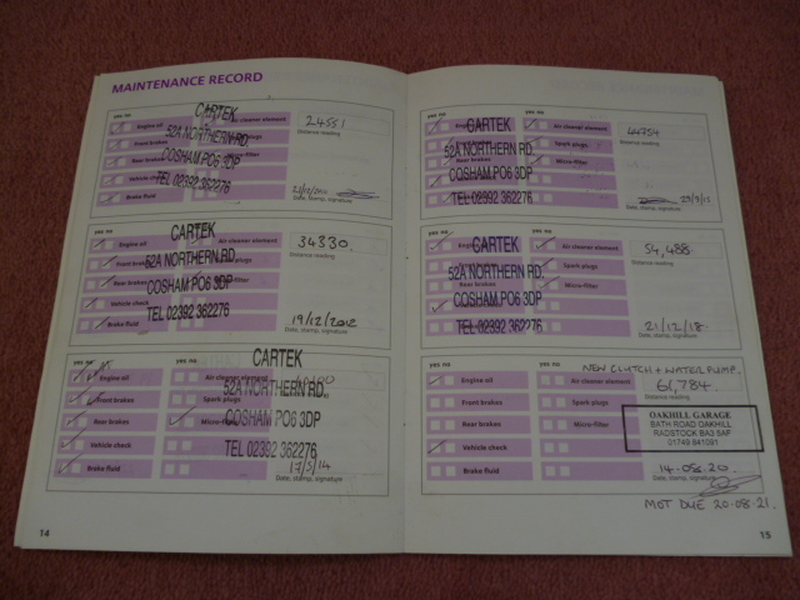 MAINTENANCE RECORD
yes no
Engine oil
Air cleaner element
Front brakes
Spark plugs
Rear brakes
Micro-filter
Vehicle check
Brake fluid
CARTEK
52A NORTHERN RD.
COSHAM PO6 3DP
TEL 02392 362276
24551
Distance reading
Date, stamp, signature
yes no
Engine oil
Air cleaner element
Front brakes
plugs
Rear brakes
Micro-filter
Vehicle check
Brake fluid
CARTEK
52A NORTHERN RD.
COSHAM PO6 3DP
TEL 02392 362276
34330.
Distance reading
19/12/2012
Date, stamp, signature
yes no
yes no
Engine oil
Air cleaner element
Front brakes
Spark plugs
Rear brakes
Micro-filter
Vehicle check
Brake fluid
CARTEK
52A NORTHERN RD.
COSHAM PO6 3DP
TEL 02392 362276
17/5/14
Date, stamp, signature
14
yes no
yes no
Engine oil
Air cleaner element
Spark plugs
Rear brakes
Micro-filter
CARTEK
52A NORTHERN RD.
COSHAM PO6 3DP
TEL 02392 362276
44754
Distance reading
29/9/15
Date, stamp, signature
yes no
yes no
Engine oil
Air cleaner element
Spark plugs
Rear brakes
Micro-filter
CARTEK
52A NORTHERN RD.
COSHAM PO6 3DP
TEL 02392 362276
54,488.
Distance reading
21/12/18.
Date, stamp, signature
yes no
yes no
NEW CLUTCH + WATER PUMP.
Engine oil
Air cleaner element
61,784.
Distance reading
Front brakes
Spark plugs
Rear brakes
Micro-filter
Vehicle check
Brake fluid
OAKHILL GARAGE
BATH ROAD OAKHILL
RADSTOCK BA3 5AF
01749 841091
14.08.20.
Date, stamp, signature
MOT DUE 20.08.21.
15